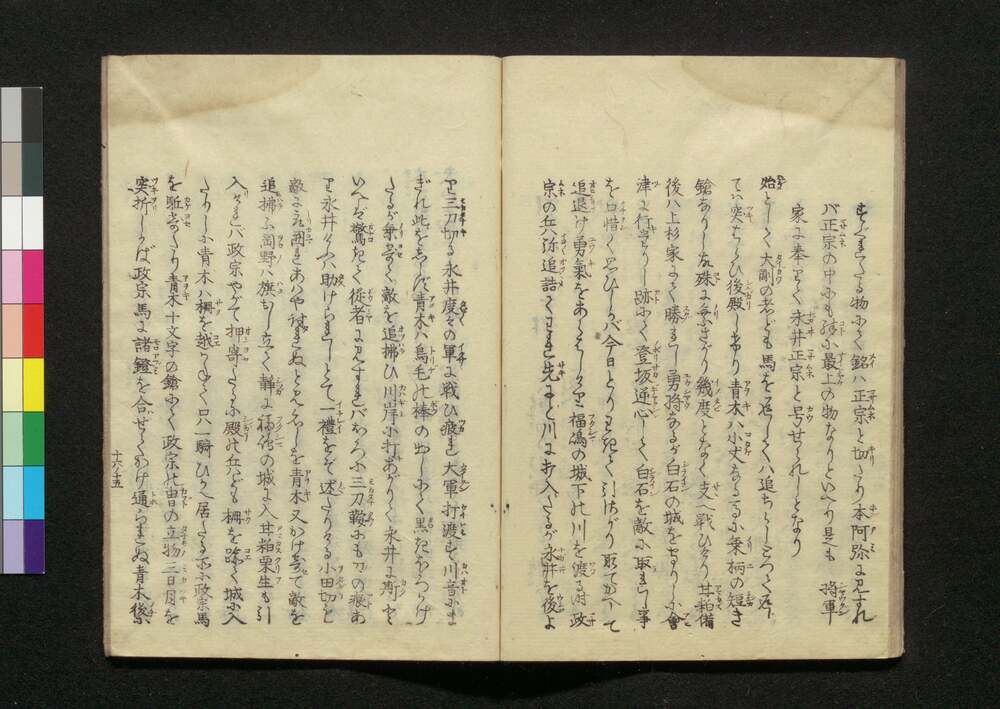 る物にて銘ハ正宗と切たり本阿弥に見すれ
バ正宗の中にも殊に最上の物なりといへり是も 将軍
家に奉りて永井正宗と号せられしとなり
始としく大剛の者ども馬を返してハ追ちらしらつて返し
てハ突ちらひ後殿しあり青木ハ小丈なるに朱柄の短き
鎗なりし殊に幾度となく支へ戦ひけり 甘粕備
後ハ上杉家にて勝れし勇将なるが白石の城をまもりしに會
津に行たりし跡にて登坂逆心して白石を敵に取れし事
を口惜く思ひしが今日とりわきて引はがり取てかへして
追退け勇氣をあらはしけり福嶋の城下の川を渡る時政
宗の兵弥追詰て先にと川に打入たるが永井を後よ
り三刀切る永井度々の軍に戦ひ疲れ大軍打渡す川音にま
ぎれ此をしらず青木ハ鳥毛の棒の出しにて黒きほろかけ
たるが乗よせて敵を追拂ひ川岸に打あがりて永井に斯と
いへバ驚きて従者に見すれバほろに三刀鞍にも刀の痕あ
り永井ハ助けられしとて一禮をぞ述たりける小田切と
敵に取囲まれあハや討れぬと見えしを青木又かけ来て敵を
追拂ふ岡野ハ旗おし立て静に福嶋の城に入甘粕栗生も引
入けれバ政宗やがて押寄たるに殿の兵ども柵を踰て城に入
たりしに青木ハ柵を越かねて只一騎ひかへ居たる所に政宗馬
を駈寄たり青木十文字の鎗にて政宗の冑の立物三日月を
突折しかば政宗馬に諸鐙を合せてかけ通られぬ青木後に
十六ノ五